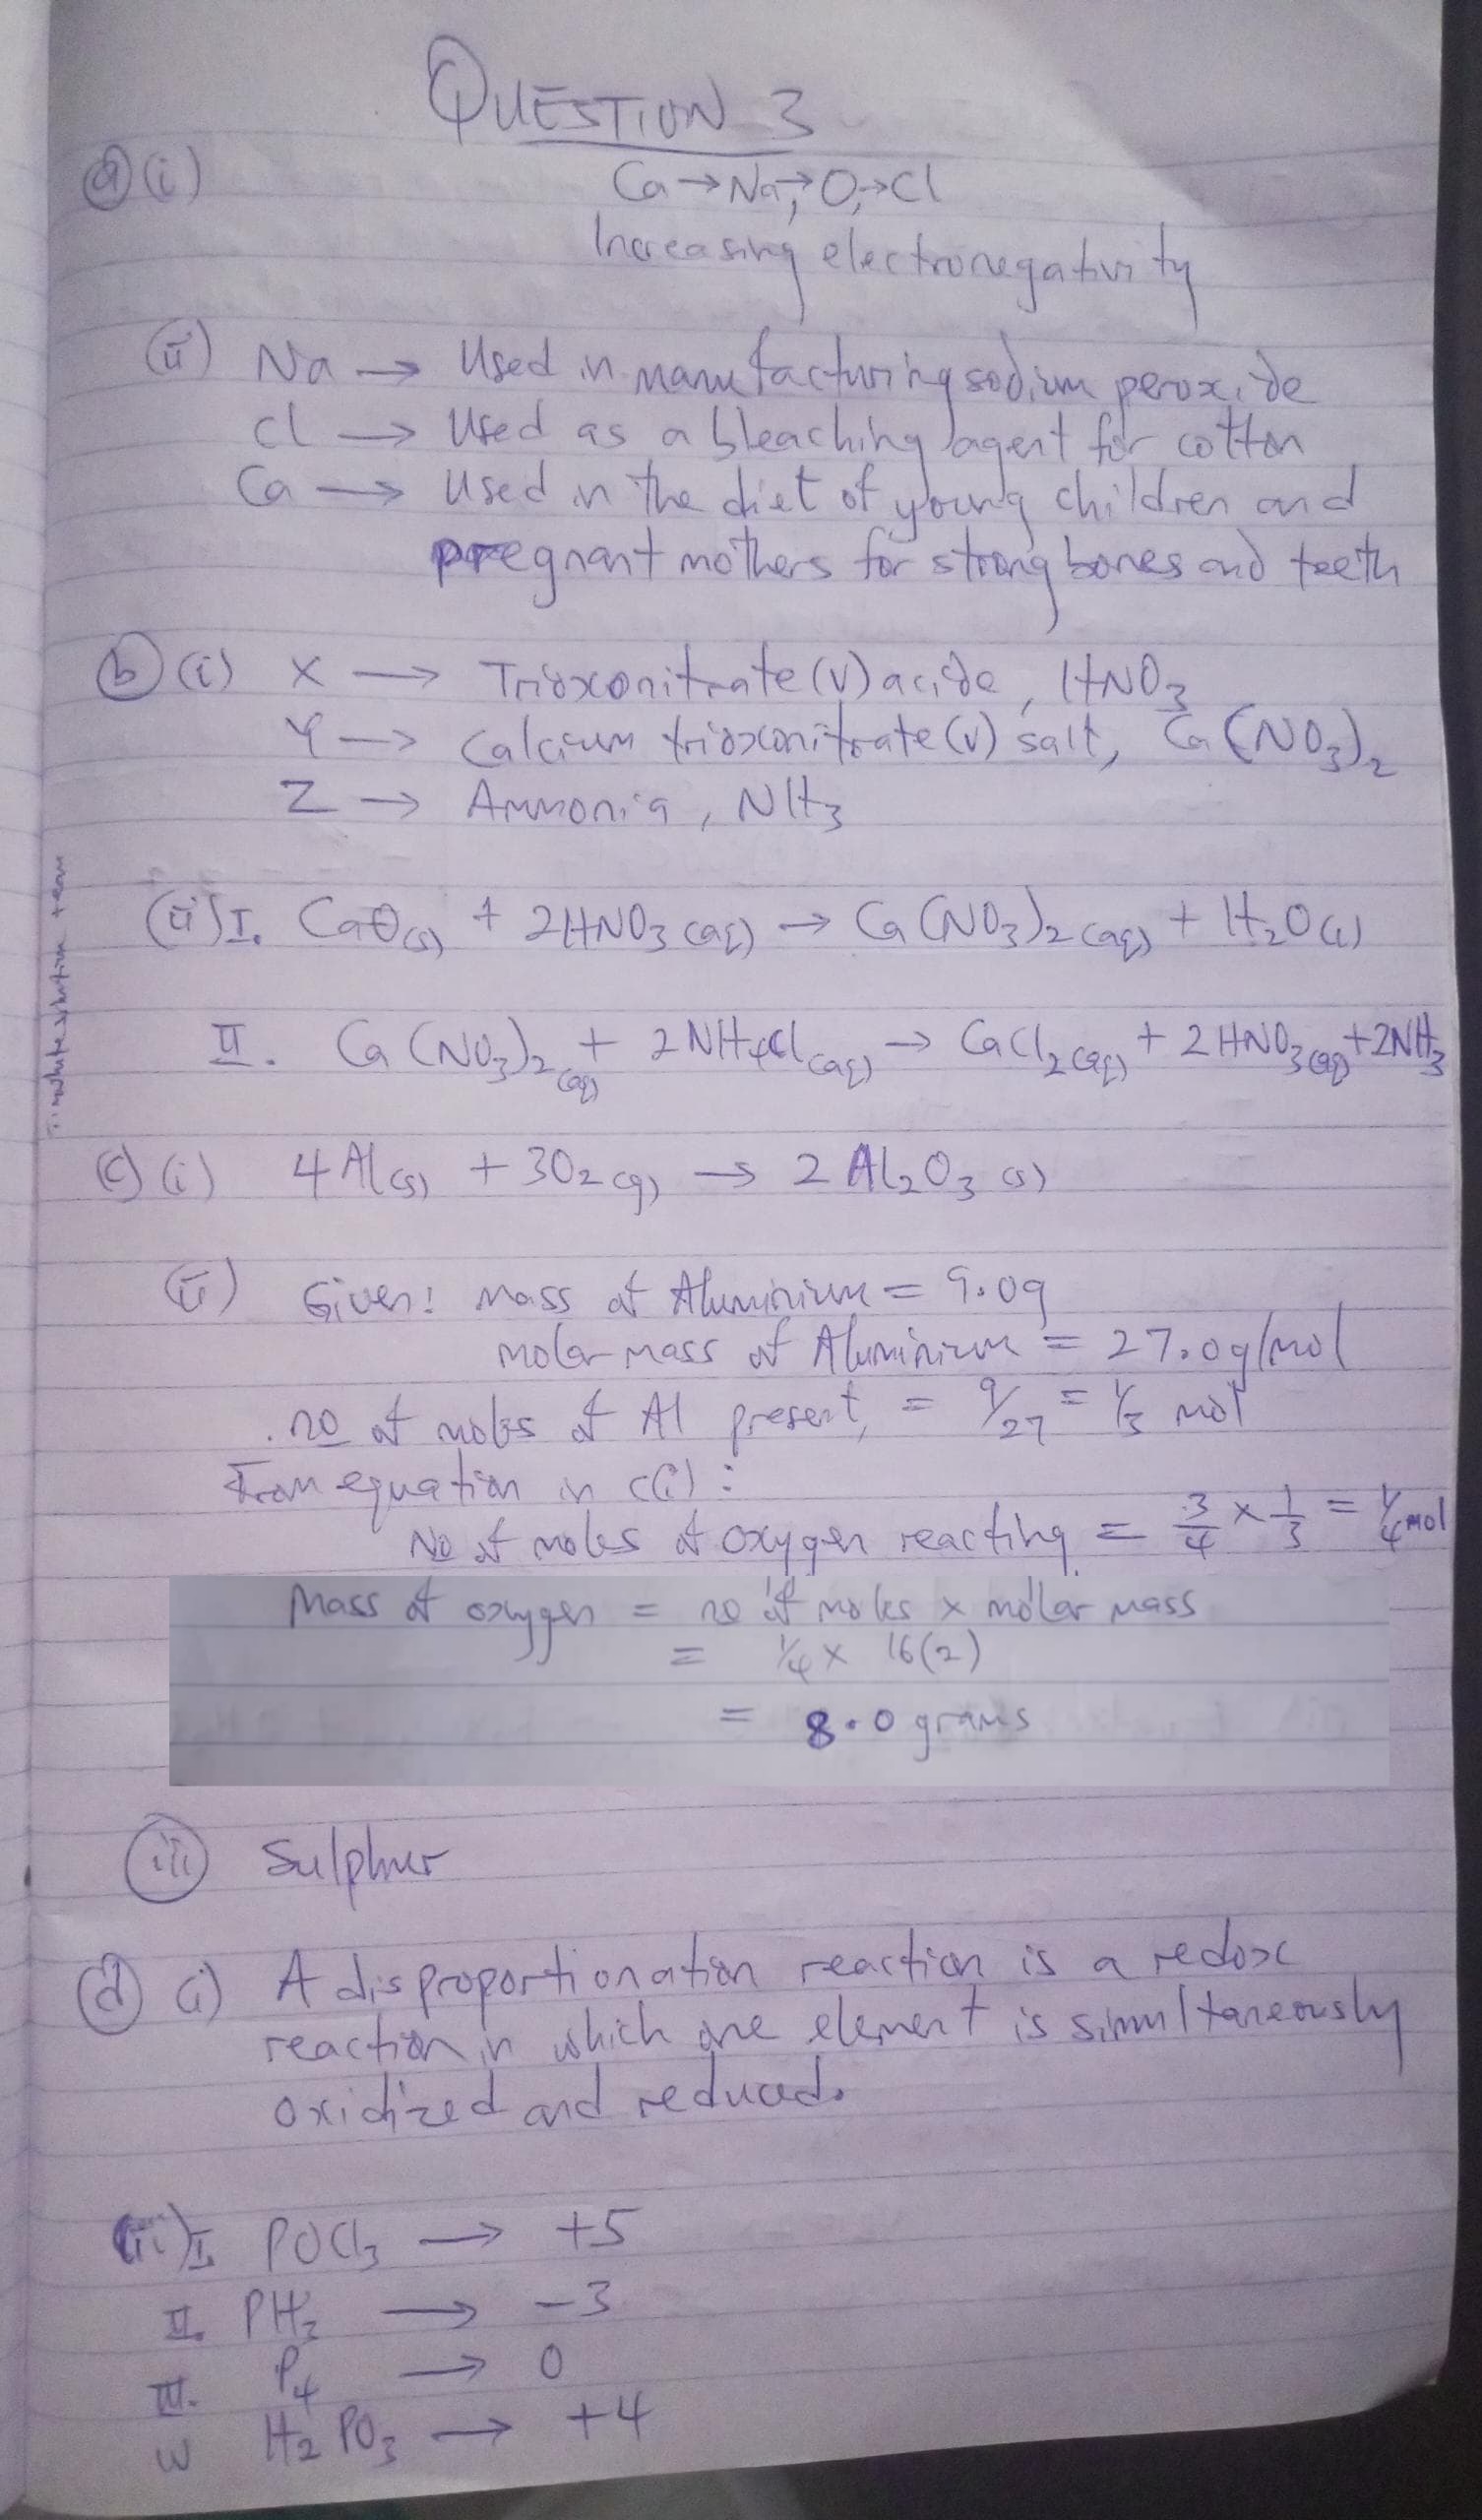 QUESTION 3
(a)(i) Ca→Na,→O,→Cl
Increasing electronegativity
(ii) Na → Used in manufacturing sodium peroxide
Cl → Used as a bleaching agent for cotton
Ca → Used in the diet of young children and
pregnant mothers for strong bones and teeth
(b)(i) X → Trioxonitrate(V) acide, HNO₃
Y → Calcium trioxonitrate(V) salt, Ca(NO₃)₂
Z → Ammonia, NH₃
(ii) I. CaO(s) + 2HNO₃(aq) → Ca(NO₃)₂(aq) + H₂O(l)
II. Ca(NO₃)₂(aq) + 2NH₄Cl(aq) → CaCl₂(aq) + 2HNO₃(aq) + 2NH₃
(c)(i) 4Al(s) + 3O₂(g) → 2Al₂O₃(s)
(ii) Given: mass of Aluminium = 9.0g
molar mass of Aluminium = 27.0g/mol
no of moles of Al present, = 9/27 = 1/3 mol
From equation in c(i):
No of moles of oxygen reacting = 3/4 × 1/3 = 1/4 mol
Mass of oxygen = no of moles × molar mass
= 1/4 × 16(2)
= 8.0 grams
(iii) Sulphur
(d) (i) A disproportionation reaction is a redox
reaction in which one element is simultaneously
oxidized and reduced.
(ii) I. POCl₃ → +5
II. PH₃ → -3
III. P₄ → 0
IV H₂PO₃ → +4